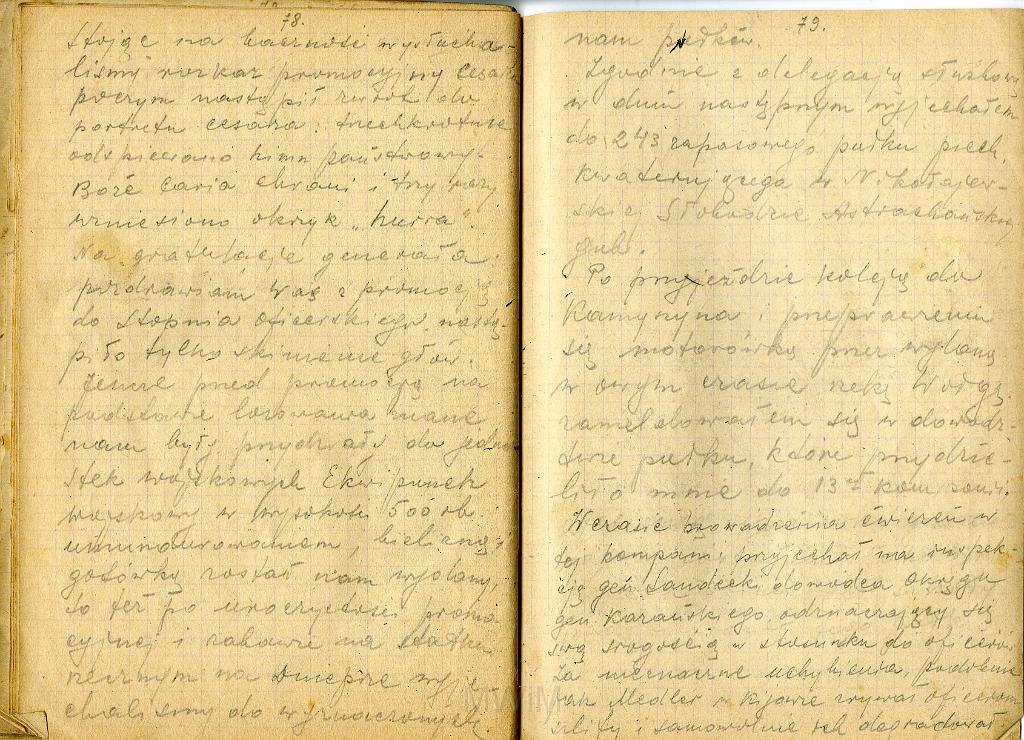 78.
Stojąc na baczność wysłucha-
liśmy rozkaz promocyjny cesarza
poczym nastąpił zwrot do
portretu cesarza. trzechkrotnie
odśpiewano himn państwowy-
Boże Caria chrani i trzy razy
wzniesiono okrzyk „hurra".
Na gratulacje generała
pozdrawiam Was z promocją
do stopnia oficerskiego, nastą-
piło tylko skinienie głów.
Jeszcze przed promocją na
podstawie losowania znane
nam były przydziały do jedno
stek wojskowych Ekwipunek
wojskowy w wysokości 500 rb.
umundurowaniem, bielizną i
gotówką został nam wydany,
to też po uroczystości promo
cyjnej i zabawie na statku
rzecznym na Dnieprze wyje
chaliśmy do wyznaczonych
79.
nam pułków.
Zgodnie z delegacją służbową
w dniu następnym wyjechałem
do 243 zapasowego pułku piech.
kwaterującego w Nikołajew-
skiej Słobodzie Astrachańskiej
gub.
Po przyjeździe koleją do
Kamyszyna i przeprawieniu
się motorówką przez wylaną
w owym czasie rzekę Wołgę
zameldowałem się w dowódz-
twie pułku, które przydzie-
liło mnie do 13ej kom
W czasie prowadzenia ćwiczeń w
tej kompanii przyjechał na inspek-
cję gen. Sandecki dowódca Okręgu
gen Kazańskiego, odznaczający się
swą srogością w stosunku do oficerów
Za nieznaczne uchybienia, podobnie
jak Medler w Kijowie zrywał oficerom
szlify i samowolnie ich degradował.
MWiM